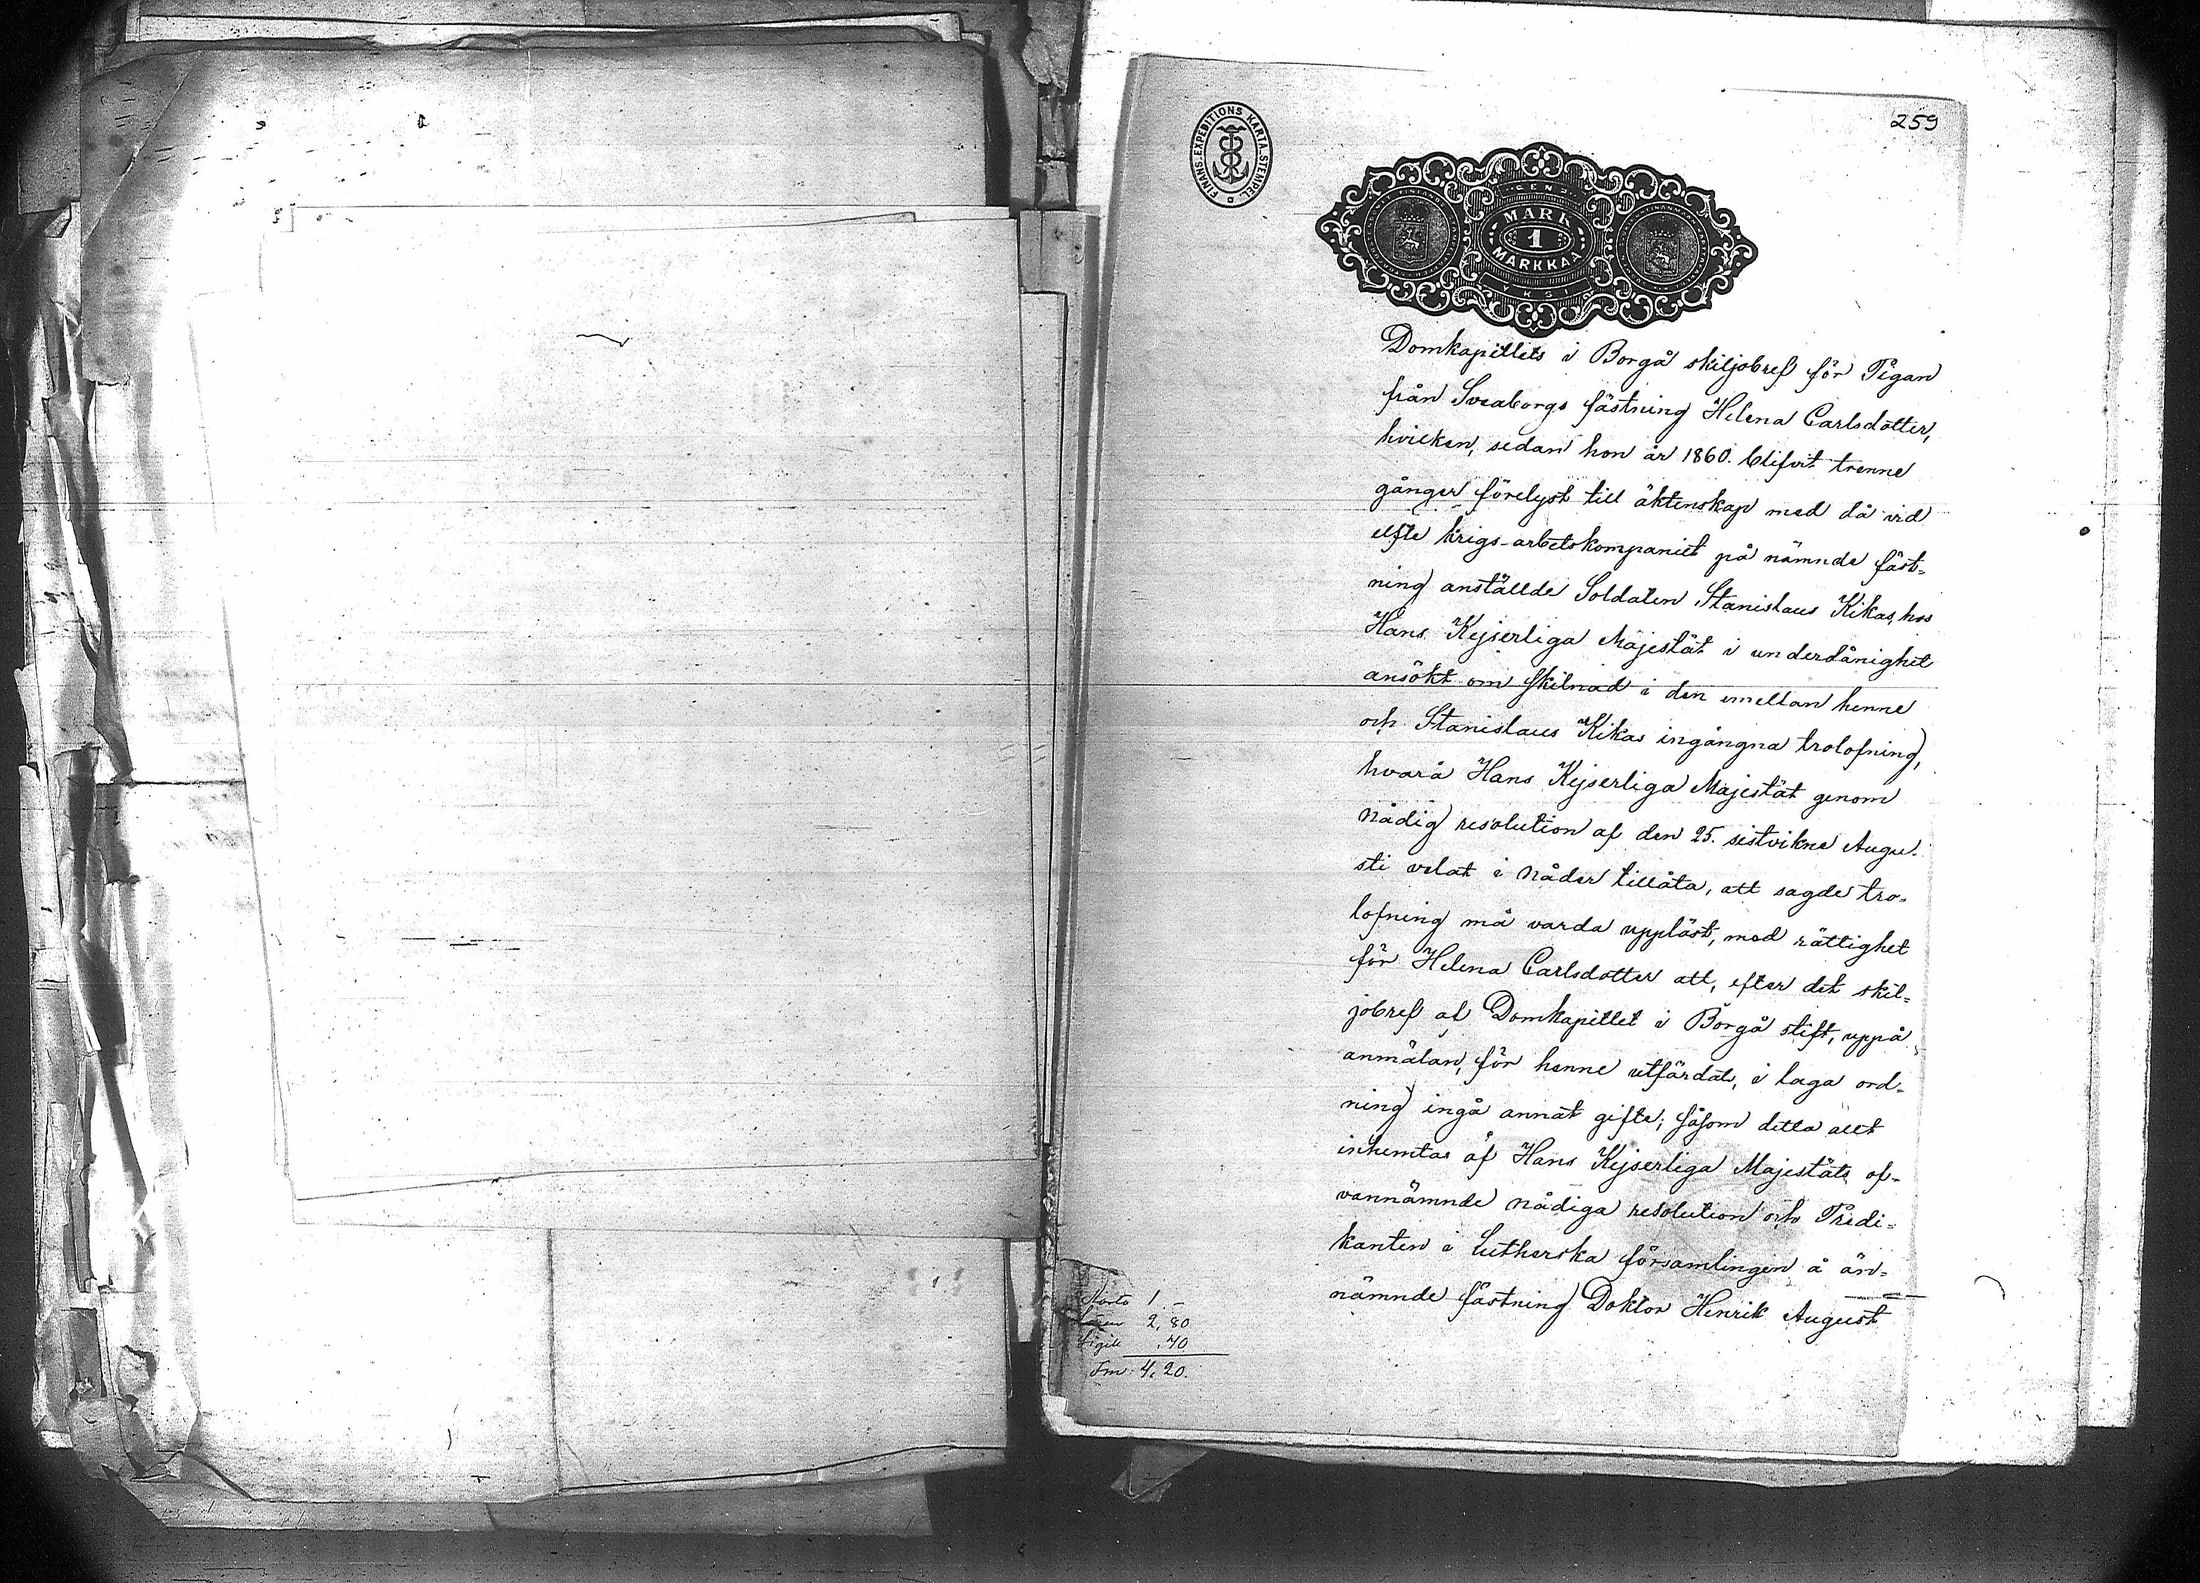 259
FINANS-EXPEDITIONS KARTA-STEMPEL
MARK
1
MARKKAA
YKSI
Domkapitlets i Borgå skiljobref för Pigan
från Sveaborgs fästning Helena Carlsdotter,
hvilken, sedan hon år 1860. blifvit trenne
gånger förelyst till äktenskap med då vid
elfte krigs-arbetskompaniet på nämnde fäst-
ning anställde Soldaten Stanislaus Kikas, hos
Hans Kejserliga Majestät i underdånighet
ansökt om skilnad i den emellan henne
och Stanislaus Kikas ingångna trolofning,
hvarå Hans Kejserliga Majestät genom
nådig resolution af den 25. sistvikne Augu-
sti velat i nåder tillåta, att sagde tro-
lofning må varda upplöst, med rättighet
för Helena Carlsdotter att, efter det skil-
jobref af Domkapitlet i Borgå stift, uppå
anmälan, för henne utfärdats, i laga ord-
ning ingå annat gifte; såsom detta allt
inhemtas af Hans Kejserliga Majestäts of-
vannämnde nådiga resolution och Predi-
kanten i Lutherska församlingen å än-
nämnde fästning Doktor Henrik August
Karta 1.-
Lösen 2,80
Sigill .40
Fm. 4,20.